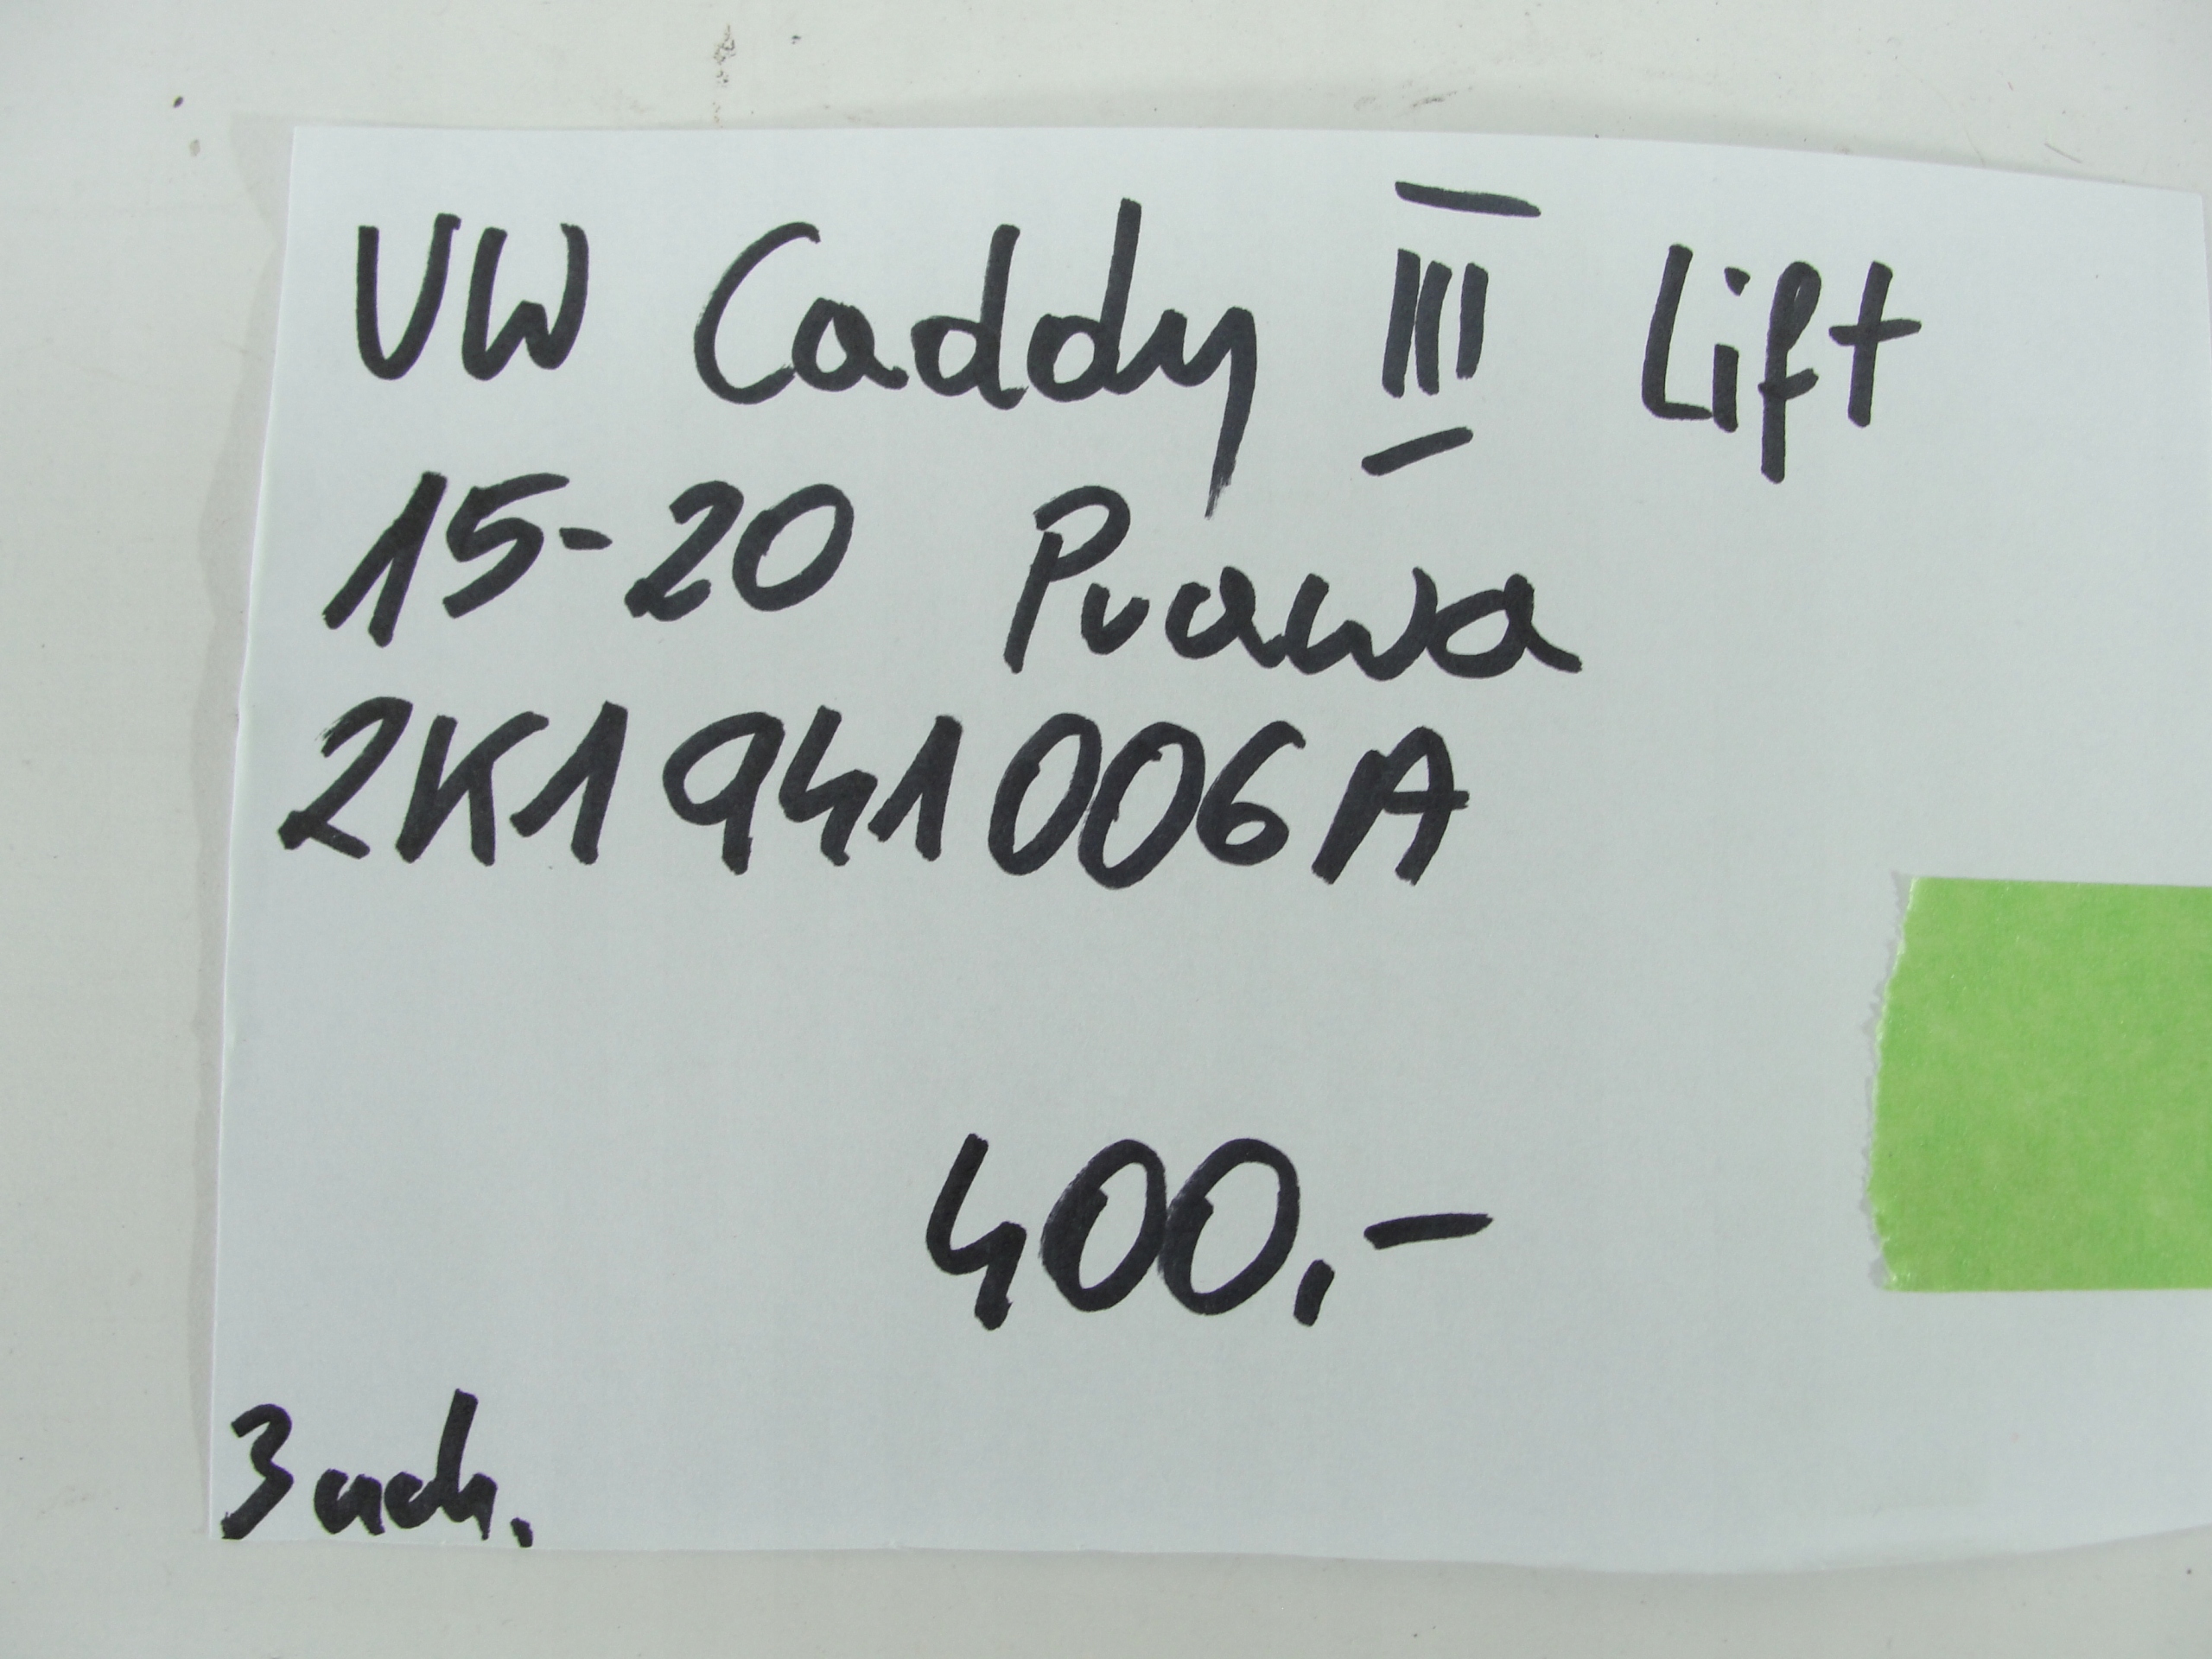 VW Caddy III Lift
15-20 Prawa
2K1 941 006 A
400,-
3 uch.